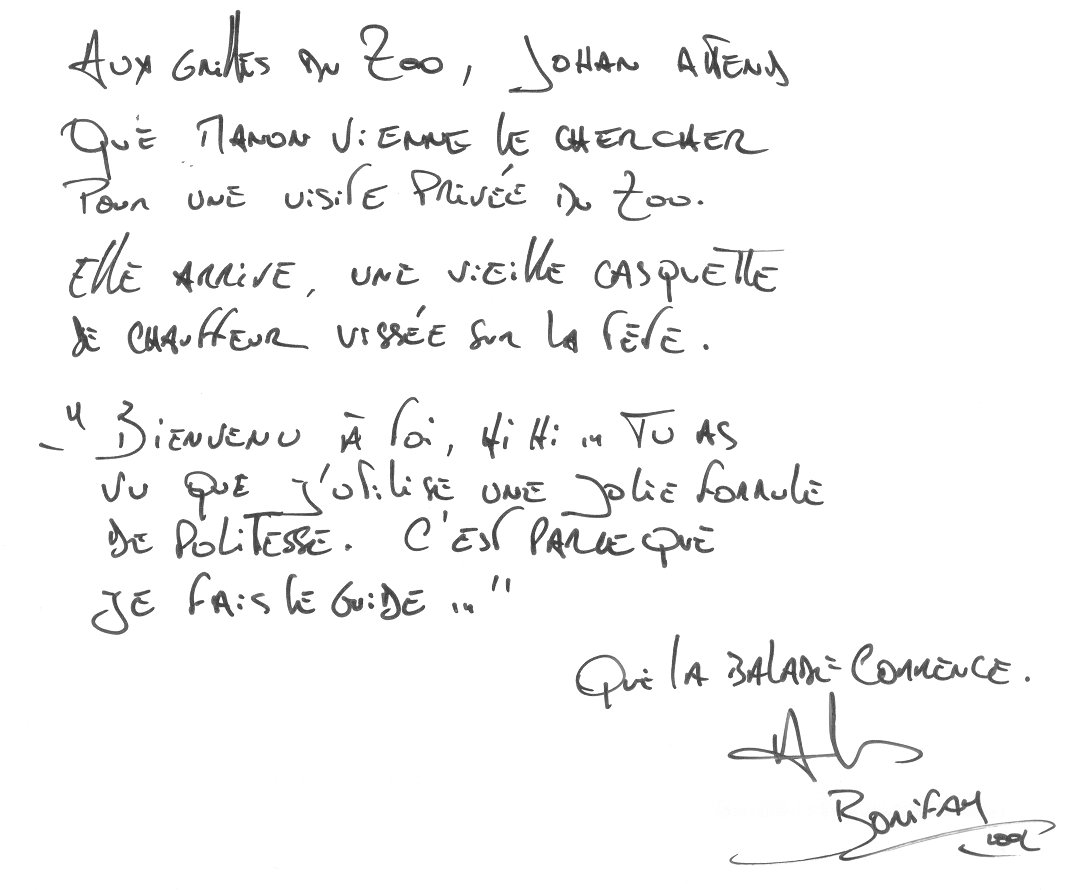 Aux grilles du Zoo, Johan attend
Que Manon vienne le chercher
Pour une visite privée du Zoo.
Elle arrive, une vieille casquette
de chauffeur vissée sur la tête.
_ "Bienvenu à toi, Hi Hi ... Tu as
vu que j'utilise une jolie formule
de politesse. C'est parce que
je fais le guide ..."
Que la balade commence.
Bonifay